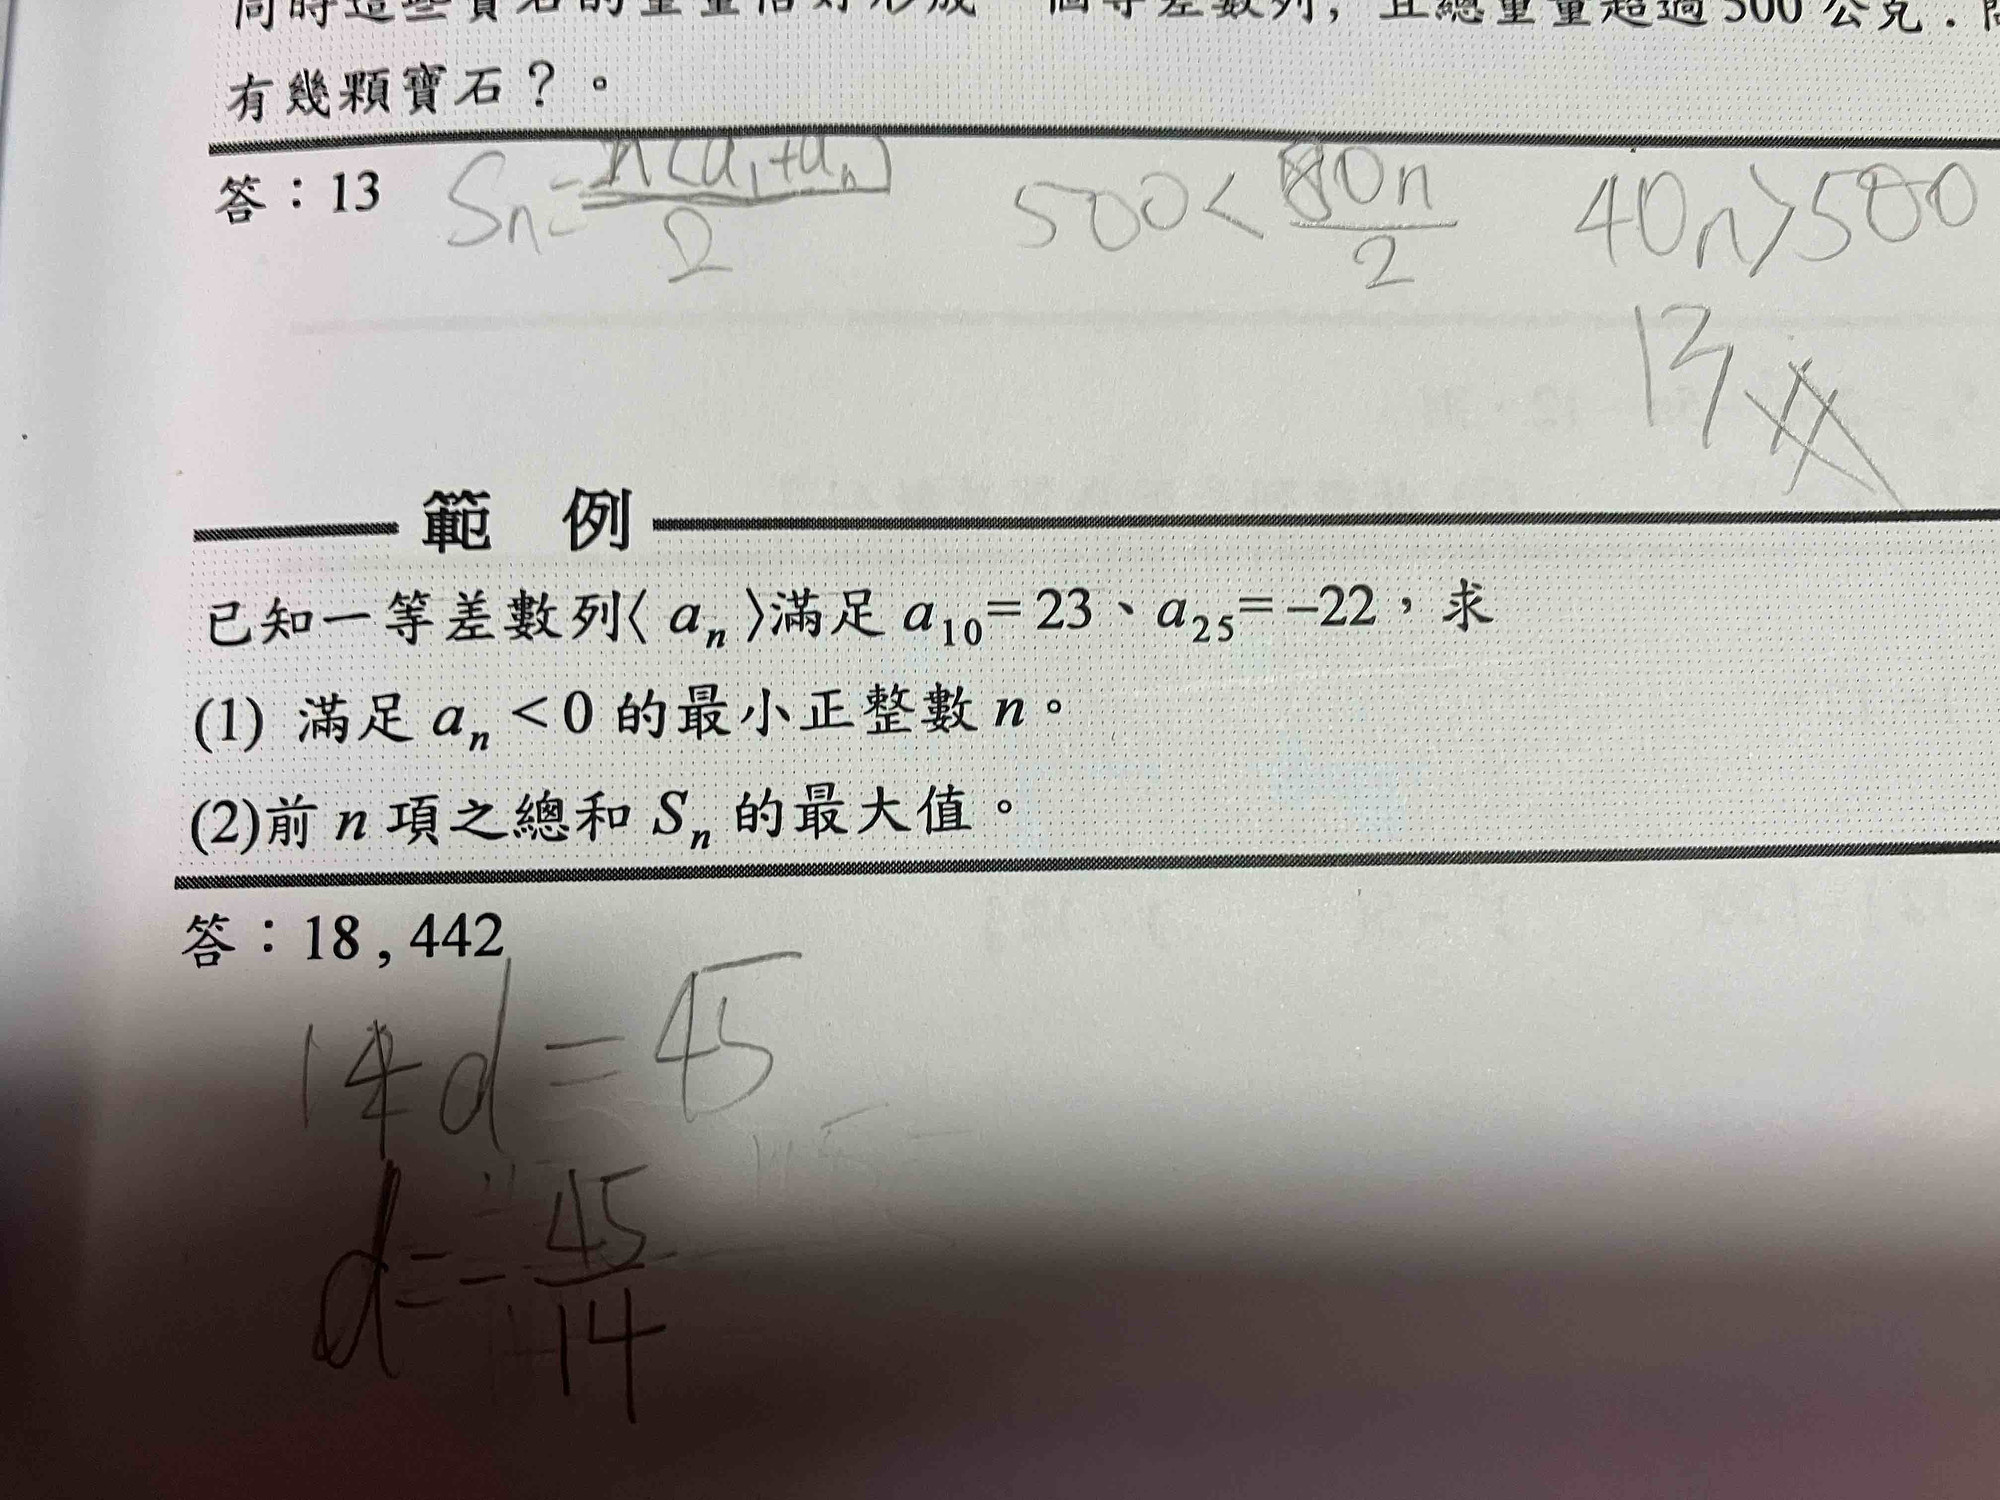 同時這些寶石的重量恰好形成一個等差數列, 且總重量超過500公克.
有幾顆寶石?。
答:13 Sn=n(a1+an)/2 500<80n/2 40n>500
13
範 例
已知一等差數列⟨an⟩滿足a10=23、a25=–22,求
(1) 滿足an<0的最小正整數n。
(2)前n項之總和Sn的最大值。
答:18,442
14d=45
d=-45/14